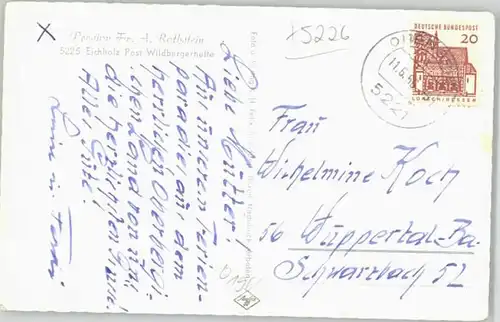 x 5226
Pension Fr. A. Rothstein
5225 Eichholz Post Wildbergerhütte
Liebe Mutter!
Aus unserem Ferien-
paradies aus dem
herrlichen Oberbergi-
schen Land von uns
die herzlichsten
Alles Gute!
DEUTSCHE BUNDESPOST
20
LORSCH/HESSEN
11.6.
Frau
Wilhelmine Koch
56 Wuppertal-Ba.
Schwarzbach 52